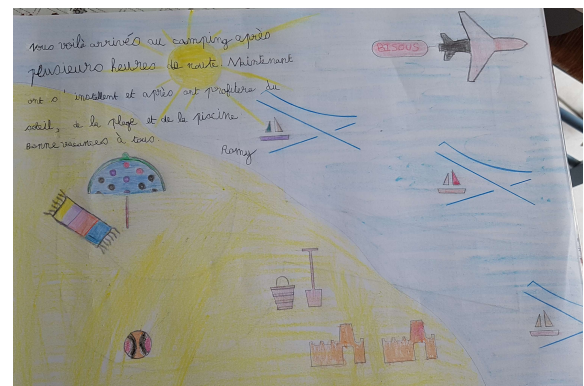 Nous voilà arrivés au camping après
plusieurs heures de route. Maintenant
ont s'installent et après ont profitera du
soleil, de la plage et de la piscine
Bonne vacances à tous.
Romy
BISOUS